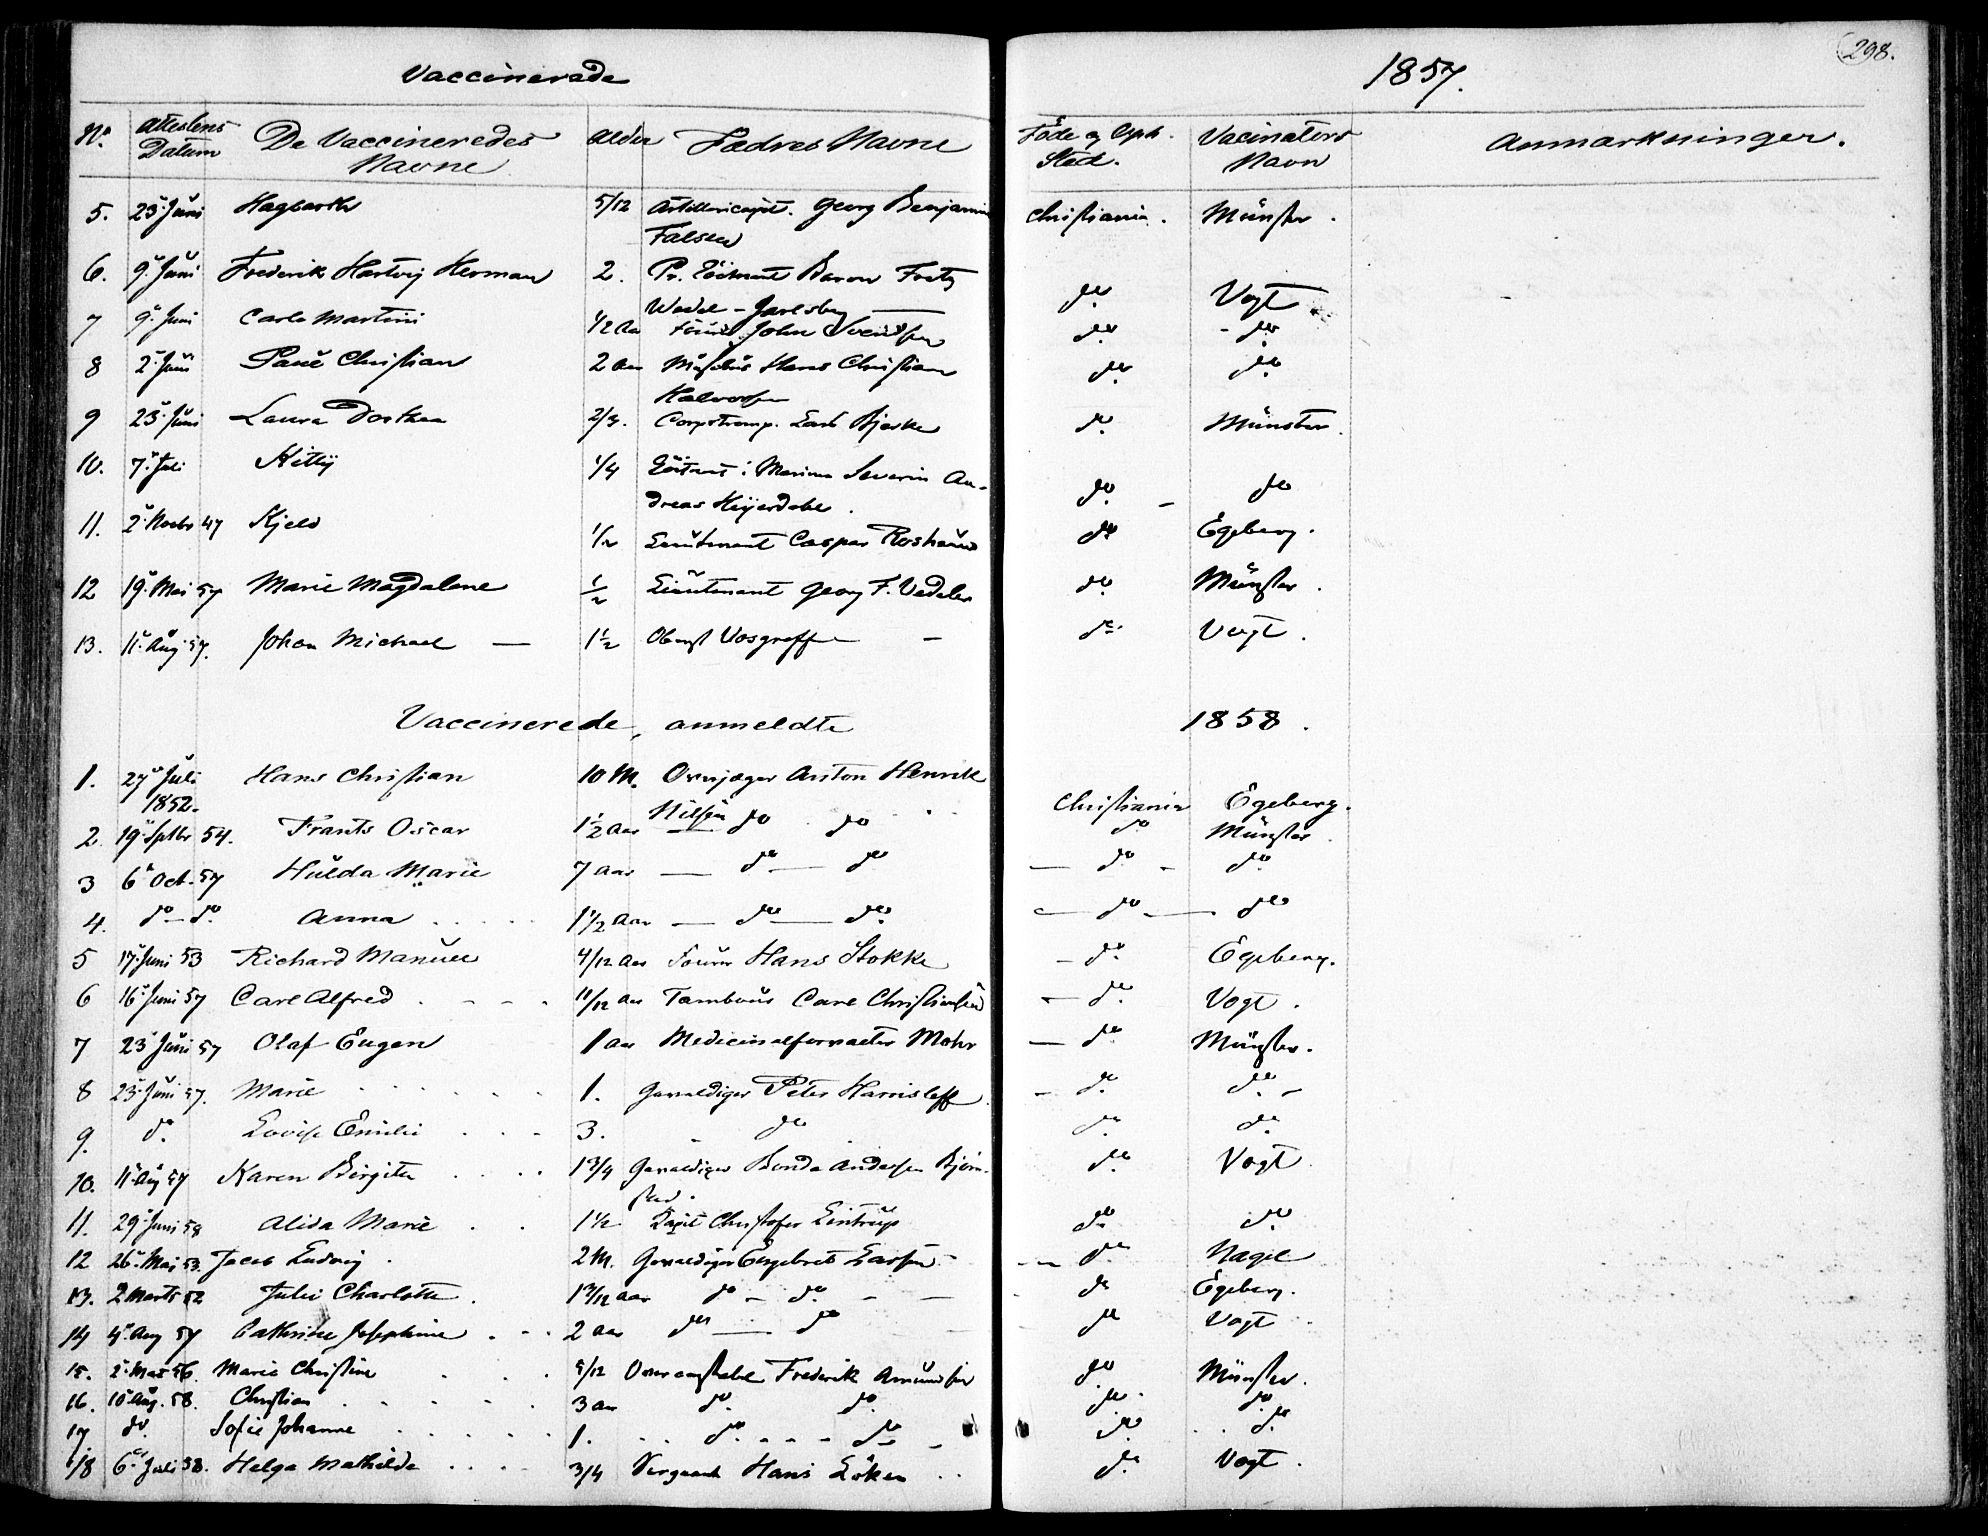 Vaccinerade 1857. 298.
No. Attestens Datum De Vaccineredes Navne Alder Fædres Navne Föde og Oph. Sted. Vacinators Navn Anmærkninger.
5. 23' Juni Hagbarth 5/12 Artillericapit. Georg Benjamin Christiania. Münster.
Falsen
6. 9' Juni Frederik Hartvig Herman 2. Pr. Löitnant Baron Fritz do Vogt
Wedel-Jarlsberg
7 9' Juni Carl Martin 1/2 Aar Fourer John Svendsen do do
8 2' Juni Paul Christian 2 Aar Hans Christian do do
Halvorsen
9 23' Juni Laura Dorthea 2/3. Corpstromp. Lars Bjerke do Münster
10. 7' Juli Kitty 1/4 Löitnt i Marinen Severin An-
dreas Heyerdahl. do do
11. 2' Novbr 47 Kjeld 1/2 Lieutenant Caspar do Egeberg.
12 19' Mai 57 Marie Magdalene 1/2 Lieutenant Georg F. Vedeler do Münster.
13. 11' Aug 57. Johan Michael 1 1/2 Oberst Vosgraff do Vogt.
Vaccinerede, anmeldte 1858.
1. 27' Juli Hans Christian 10 M. Anton Henrik
1852. Nilsen Christiania Egeberg.
2. 19' Septbr 54. Frants Oscar 1 1/2 Aar do do do Münster.
3 6' Oct. 57 Hulda Marie 7 Aar do do do do
4. do do Anna 1 1/2 Aar do do do do
5 17' Juni 53 Richard Manuel 4/12 Aar Fourer Hans Stokke do Egeberg.
6 16' Juni 57 Carl Alfred 11/12 Aar Tambour Carl Christiansen do Vogt.
7 23' Juni 57 Olaf Eugen 1 Aar Medicinalforvalter Mohr do Münster.
8 23' Juni 57. Marie 1. Gevaldiger Peter Harrisleff do do
9. do Lovise Emilie 3. do do do
10. 11' Aug 57 Karen Birgitte 1 3/4 Gevaldiger Bonde Andersen Björn- do Vogt
stad.
11. 29' Juni 58 Alida Marie 1 1/2 Kapit Christofer Lintrup do do
12 26' Mai 53. Jacob Ludvig 2 M. Gevaldiger Engebret Larsen do Nagel
13. 2 Marts 52 Julie Charlotte 13/12 Aar do do do Egeberg.
14 4' Aug 57 Cathrine Josephine 2 Aar do do do Vogt
15. 2' Mai 56. Marie Christine 5/12 Overconstabel Frederik Amundsen do Münster.
16. 10' Aug. 58. Christian 3 Aar do do do do
17 do. Sofie Johanne 1. do do do do
18 6' Juli 58. Helga Mathilde 3/4 Sergeant Hans Löken do Vogt.